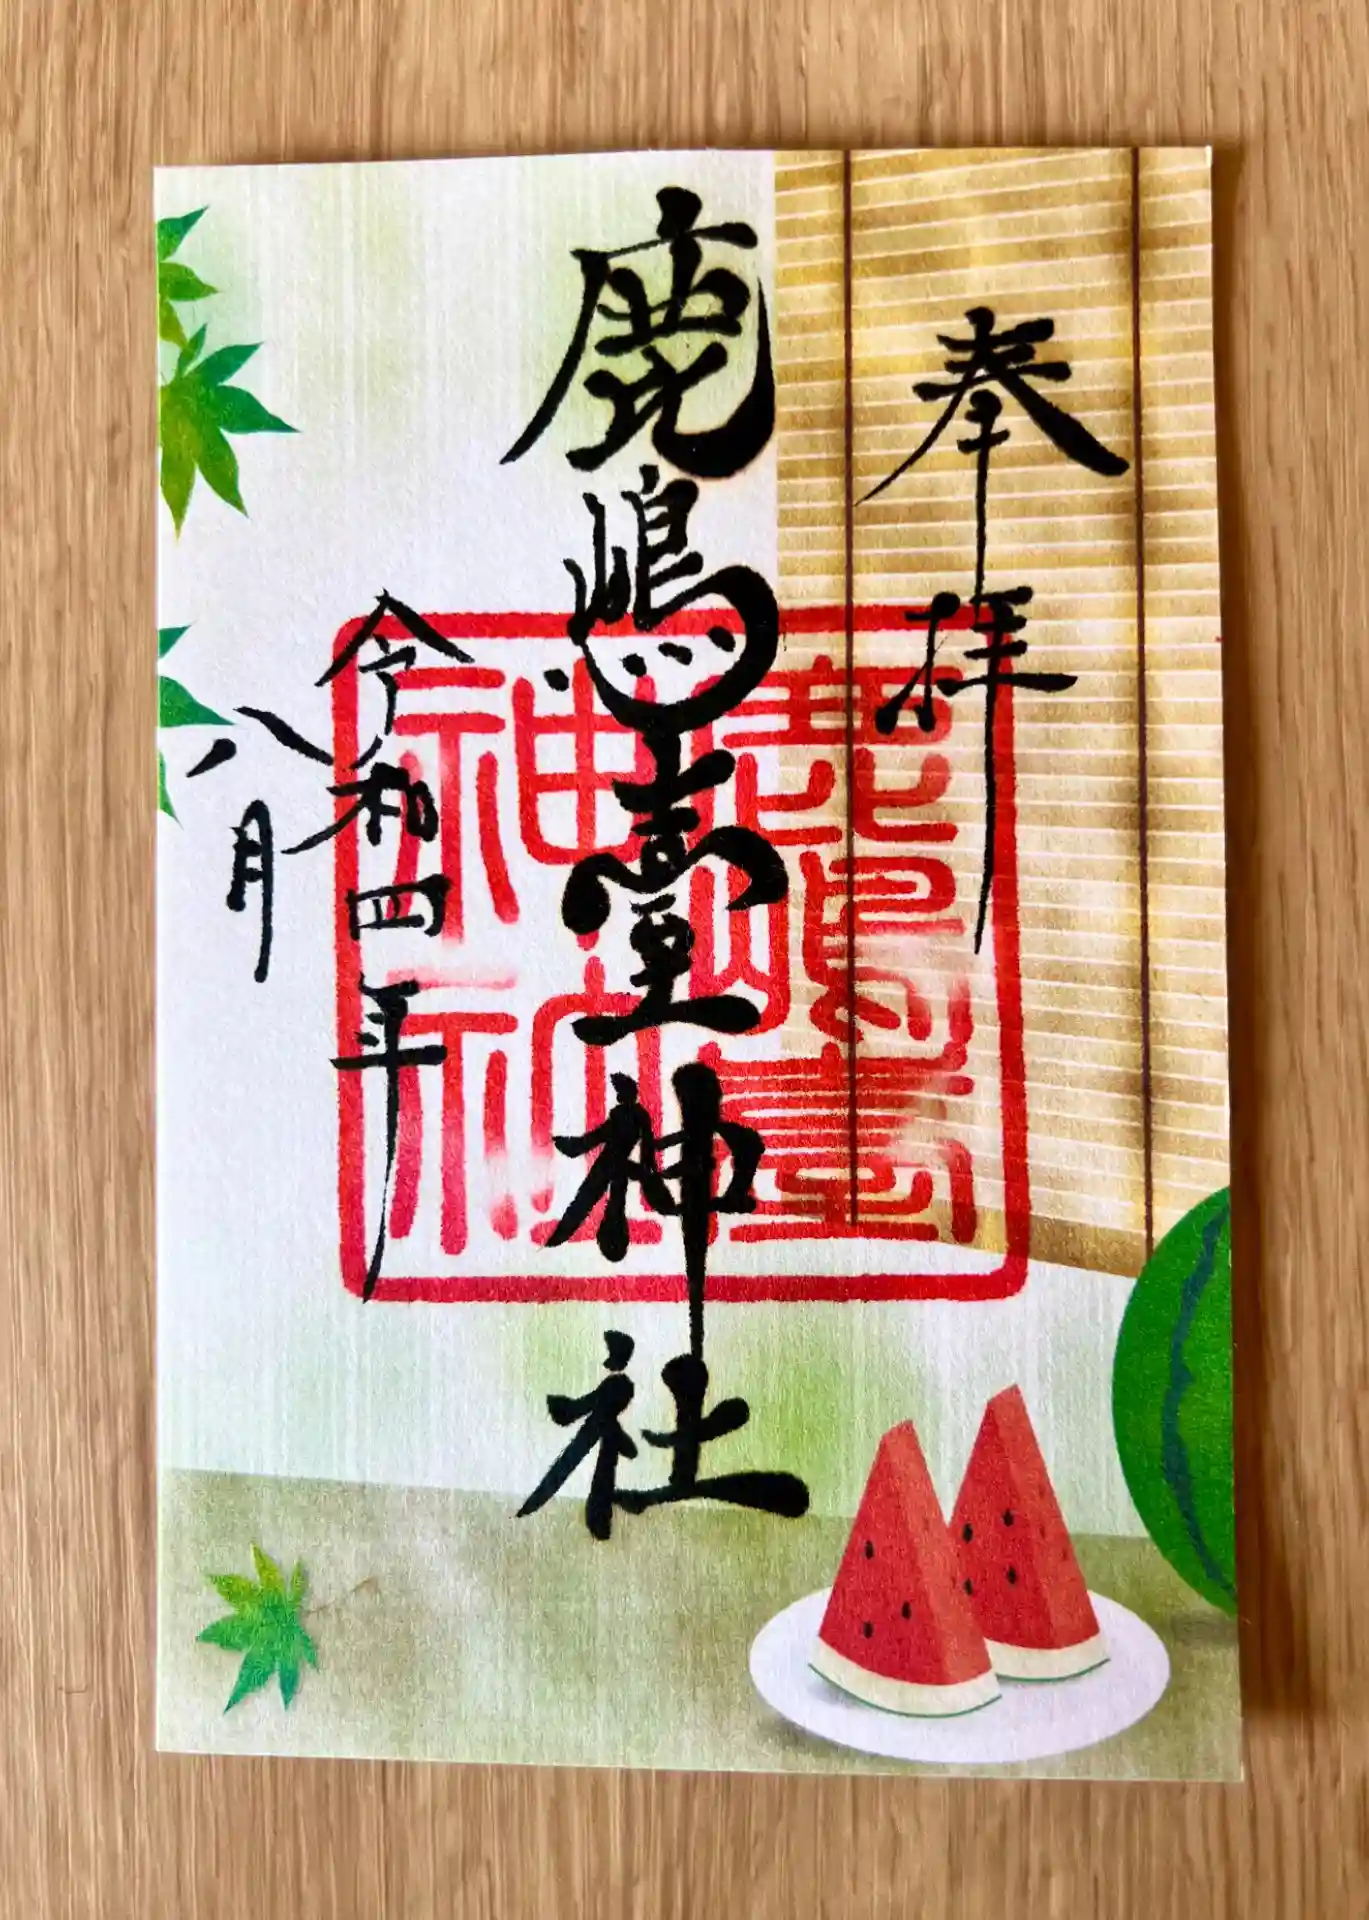 奉拝
鹿嶋臺神社
令和四年
八月
鹿嶋臺
神社